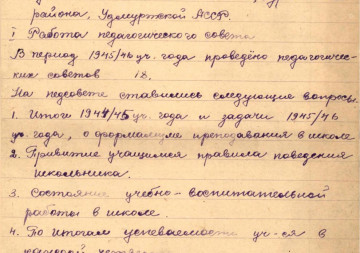 района, Удмуртской АССР.
I Работа педагогического совета
В период 1945/46 уч. года проведено педагогичес-
ких советов 18.
На педсовете ставились следующие вопросы.
1. Итоги 1944/45 уч. года и задачи 1945/46
уч. года, о формализме преподавания в школе
2. Привитие учащимся правила поведения
школьника.
3. Состояние учебно-воспитательной
работы в школе.
4. По итогам успеваемости уч-ся в